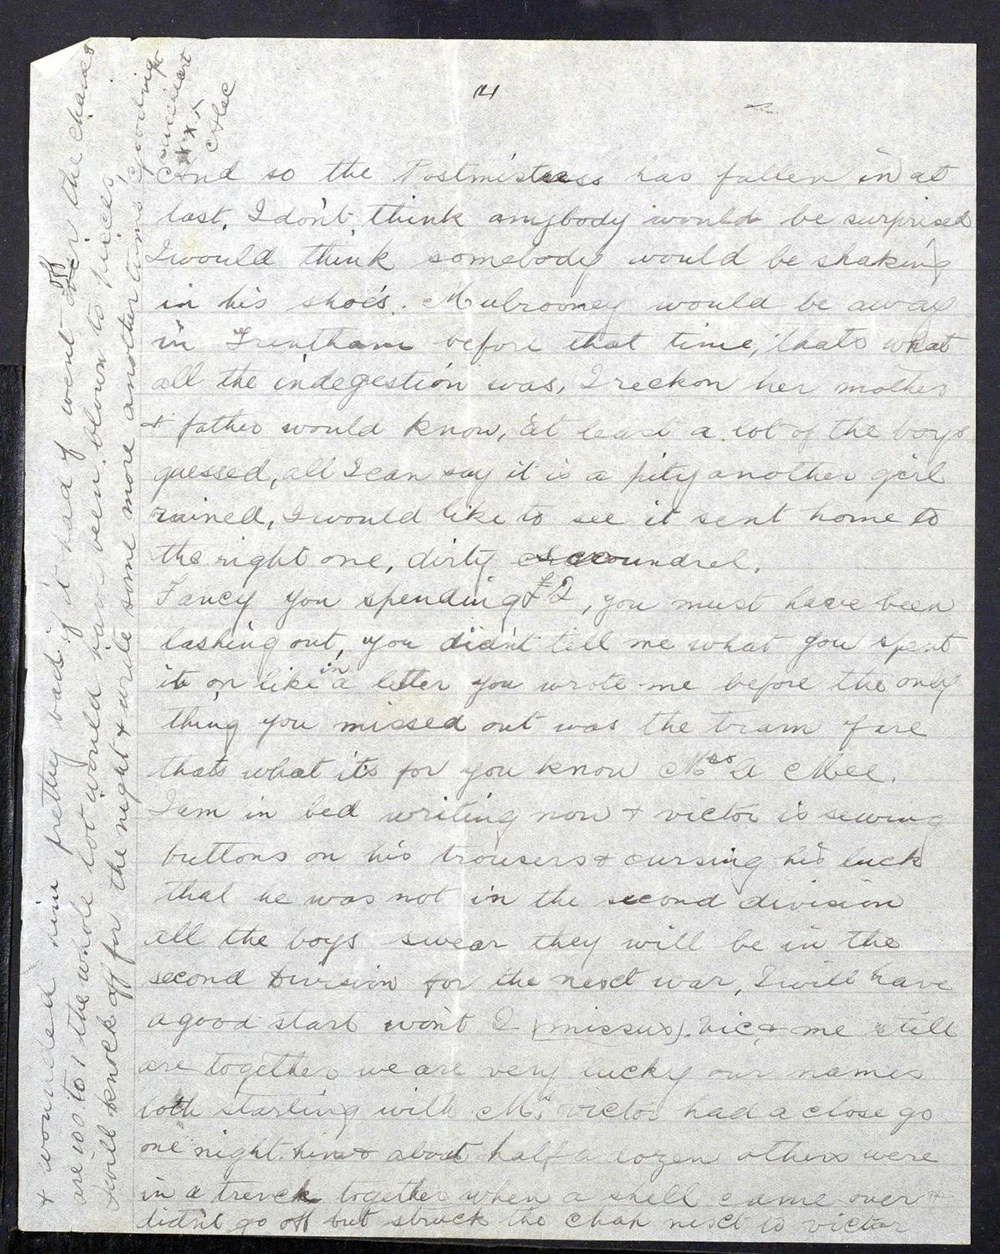 4
And so the Postmistress has fallen in at
last, I don't, think anybody would be surprised
I would think somebody would be shaking
in his shoes. Mulrooney would be away
in Trentham before that time, thats what
all the indegestion was, I reckon her mother
& father would know, at least a lot of the boys
guessed, all I can say it is a pity another girl
ruined, I would like to see it sent home to
the right one, dirty scoundrel.
Fancy you spending £2, you must have been
lashing out, you didn't tell me what you spent
it on like in a letter you wrote me before the only
thing you missed out was the tram fare
thats what its for you know Mrs A Mee.
I am in bed writing now & victor is sewing
buttons on his trousers & cursing his luck
that he was not in the second division
all the boys swear they will be in the
second Division for the next war, I will have
a good start won't I (missus). Vic & me still
are together we are very lucky our names
both starting with M. Victor had a close go
one night. him & about half a dozen others were
in a trench together when a shell came over &
didn't go off but struck the chap next to victor
& wounded him pretty bad. if it had of went off over the chances
are 100 to 1 the whole lot would have been blown to pieces,
I will knock off for the night & write some more another time, goodnight
sweetheart
x x x
Alec